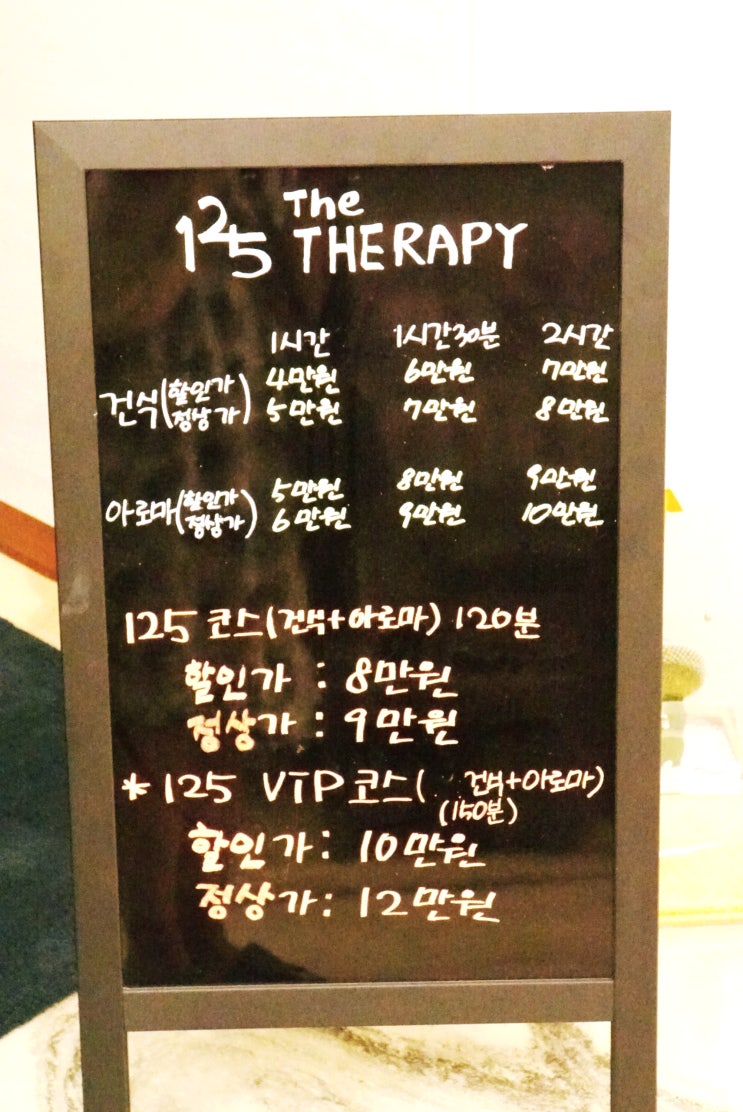 125 The
THERAPY
1시간 1시간30분 2시간
건식(할인가 4만원 6만원 7만원
정상가) 5만원 7만원 8만원
아로마(할인가 5만원 8만원 9만원
정상가) 6만원 9만원 10만원
125 코스(건식+아로마) 120분
할인가 : 8만원
정상가 : 9만원
*125 VIP 코스( 건식+아로마)
(150분)
할인가: 10만원
정상가: 12만원